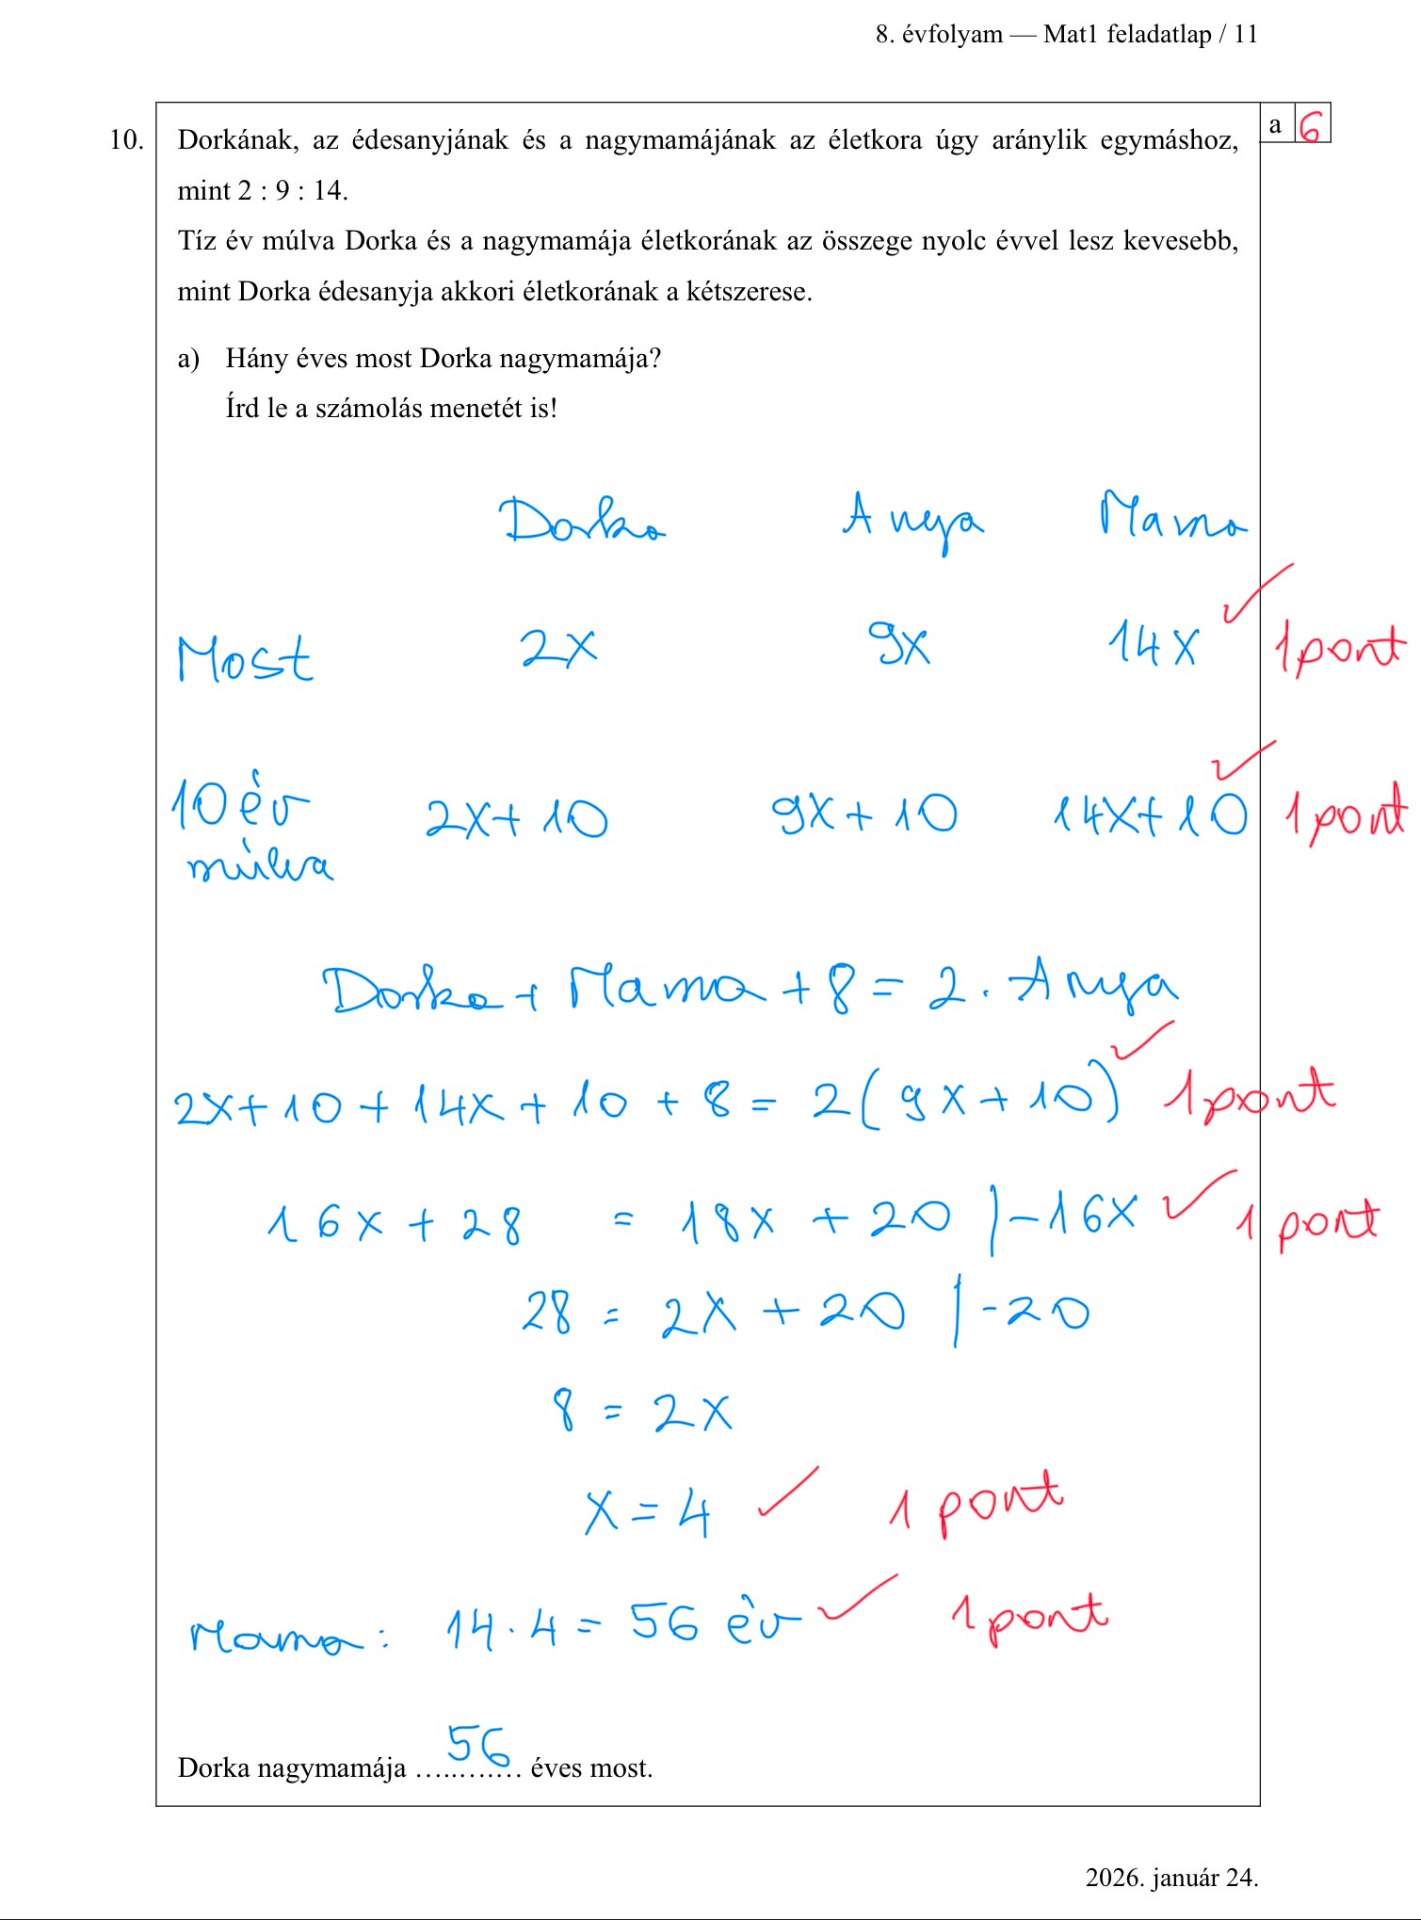 8. évfolyam — Mat1 feladatlap / 11
a 6
10. Dorkának, az édesanyjának és a nagymamájának az életkora úgy aránylik egymáshoz,
mint 2 : 9 : 14.
Tíz év múlva Dorka és a nagymamája életkorának az összege nyolc évvel lesz kevesebb,
mint Dorka édesanyja akkori életkorának a kétszerese.
a) Hány éves most Dorka nagymamája?
Írd le a számolás menetét is!
Dorka Anya Mama
Most 2x 9x 14x ✓ 1 pont
10 év 2x+10 9x+10 14x+10 ✓ 1 pont
múlva
Dorka + Mama + 8 = 2 · Anya
2x+10+14x+10+8 = 2(9x+10) ✓ 1 pont
16x+28 = 18x+20 |-16x ✓ 1 pont
28 = 2x+20 |-20
8 = 2x
x = 4 ✓ 1 pont
Mama: 14·4 = 56 év ✓ 1 pont
Dorka nagymamája ....56.... éves most.
2026. január 24.